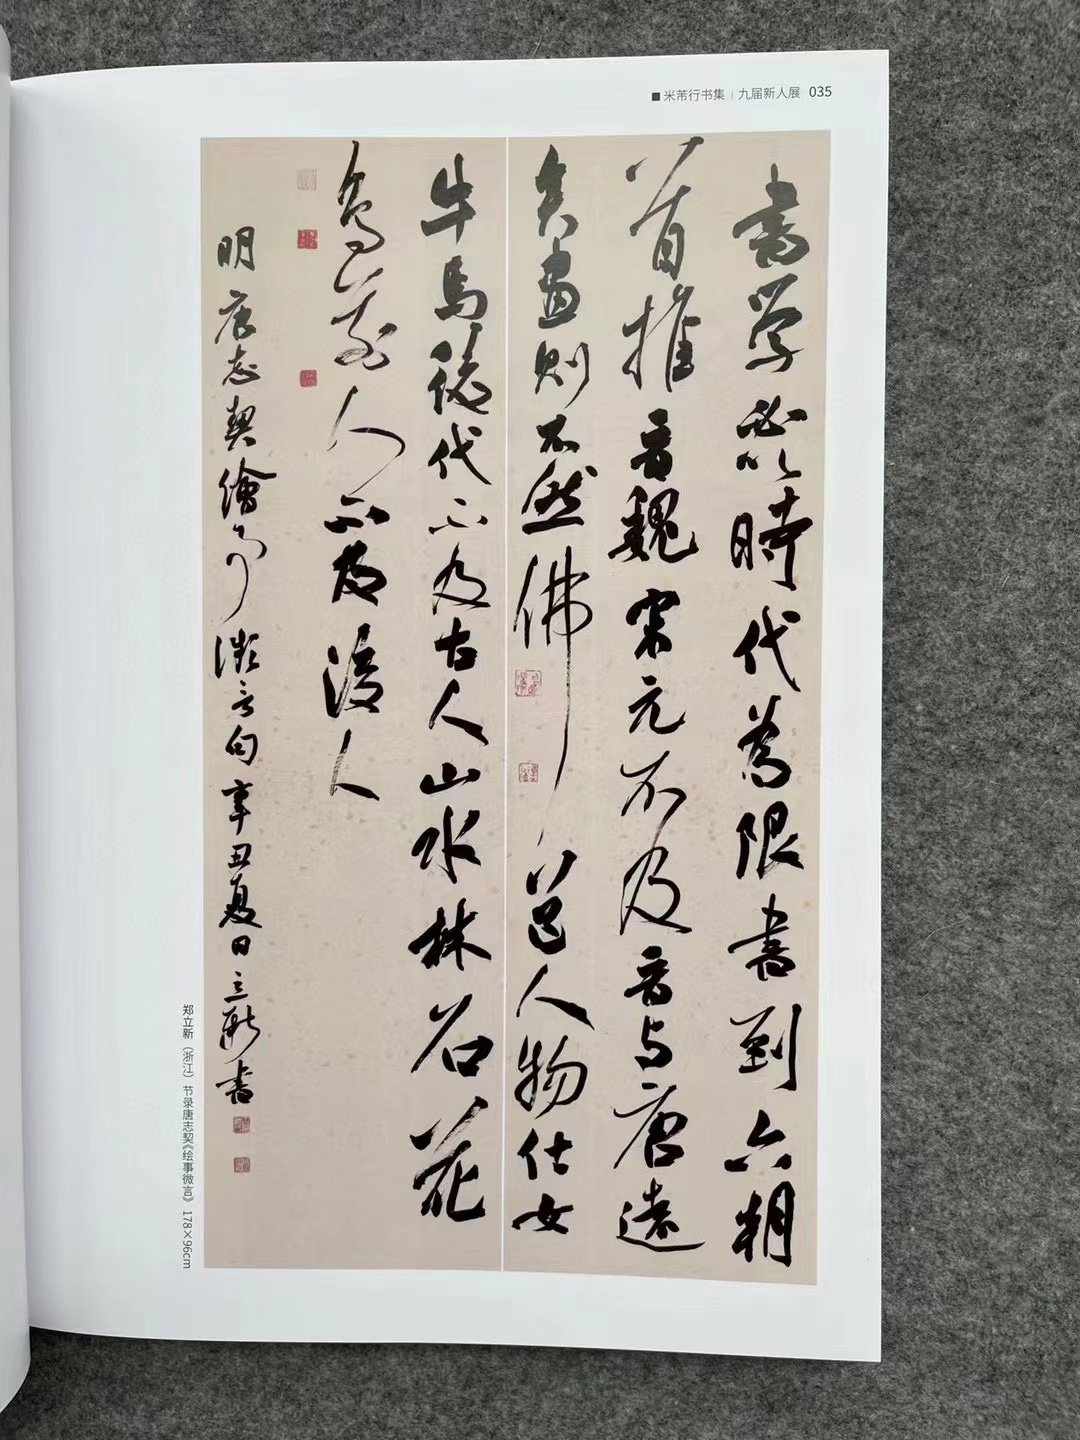 ■ 米芾行书集 | 九届新人展 035
書学必以時代為限書到六朝
首推晋魏宋元不及晋与唐遠
矣畫則不然佛道人物仕女
牛馬代不及古人山水林石花
鳥前人不及後人
明唐志契繪事微言句辛丑夏日立新書
郑立新（浙江） 节录唐志契《绘事微言》 178×96cm